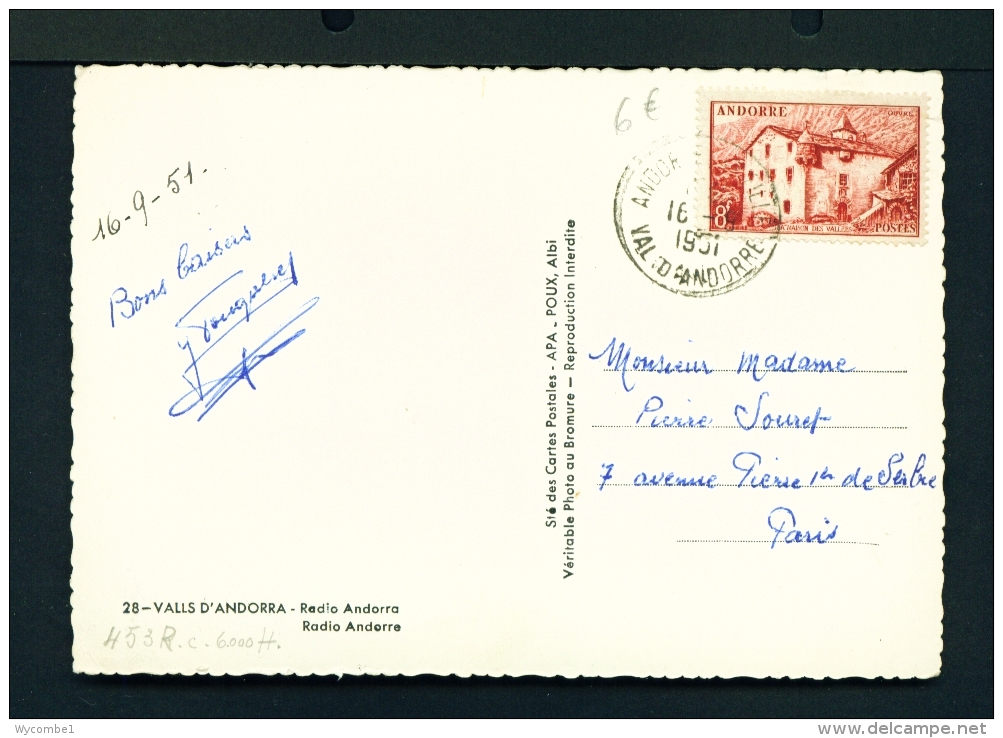 6€
ANDORRE
8F
MAISON DES VALLEES
POSTES
16
1951
VAL D'ANDORRE
16-9-51.
Bons baisers
Sté des Cartes Postales - APA - POUX, Albi
Véritable Photo au Bromure — Reproduction Interdite
Monsieur Madame
Pierre Souret
7 avenue Pierre 1er de Serbie
Paris
28—VALLS D'ANDORRA - Radio Andorra
Radio Andorre
453 R. c. 6.000 H.
Wycombe1
www.delcampe.net